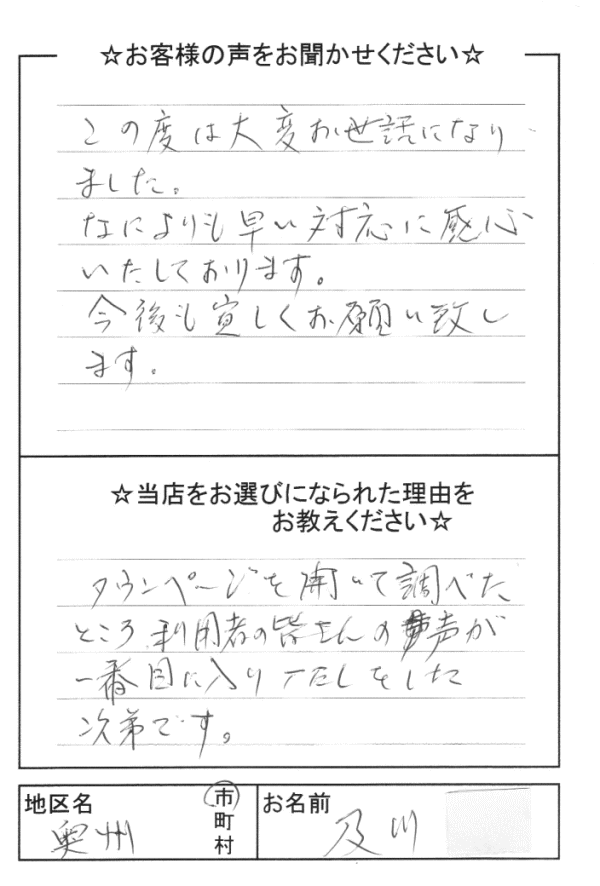 ☆お客様の声をお聞かせください☆
この度は大変お世話になり
ました。
なによりも早い対応に感心
いたしております。
今後も宜しくお願い致し
ます。
☆当店をお選びになられた理由を
お教えください☆
タウンページを開いて調べた
ところ利用者の皆さんの声が
一番目に入り をした
次第です。
地区名
奥州
市
町
村
お名前
及川